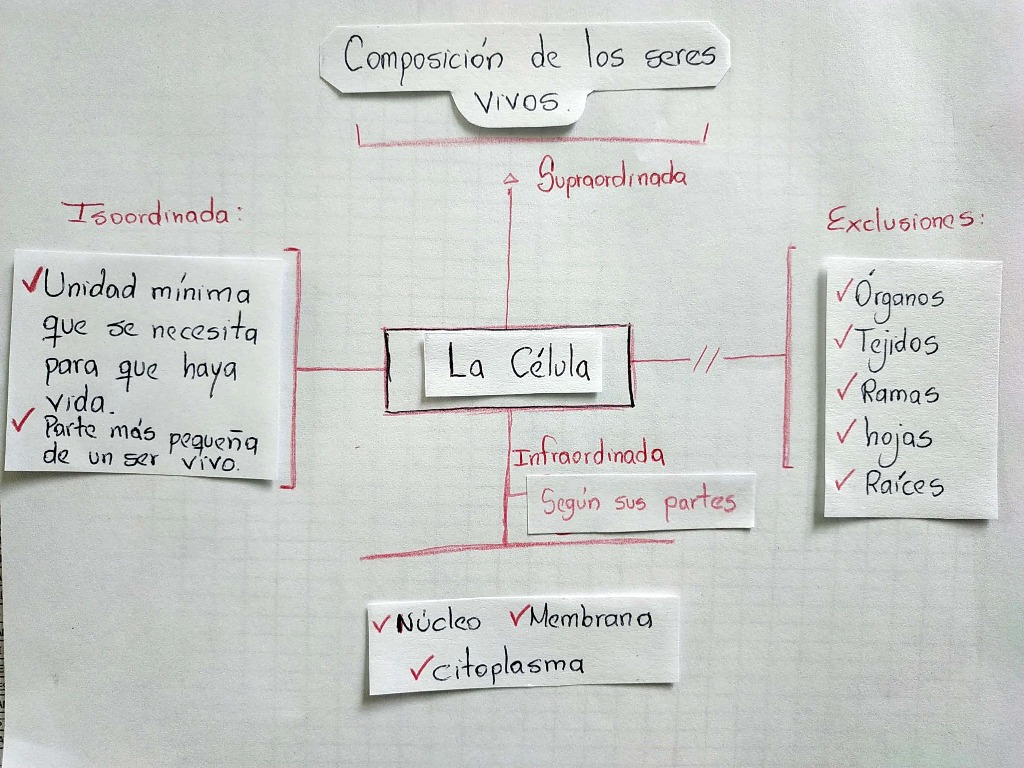 Composición de los seres
vivos.
Supraordinada
Isoordinada:
✓Unidad mínima
que se necesita
para que haya
vida.
✓ Parte más pequeña
de un ser vivo.
La Célula
Exclusiones:
✓Órganos
✓Tejidos
✓Ramas
✓hojas
✓Raíces
Infraordinada
Según sus partes
✓Núcleo ✓Membrana
✓citoplasma